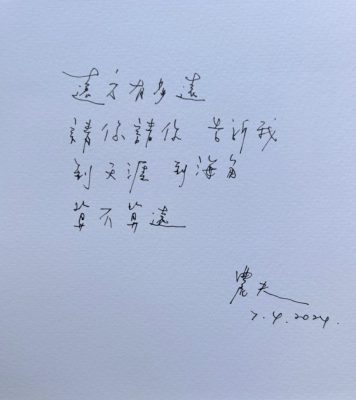 遠方有多遠
請你請你 告訴我
到天涯 到海角
算不算遠
農夫
7.4.2024.